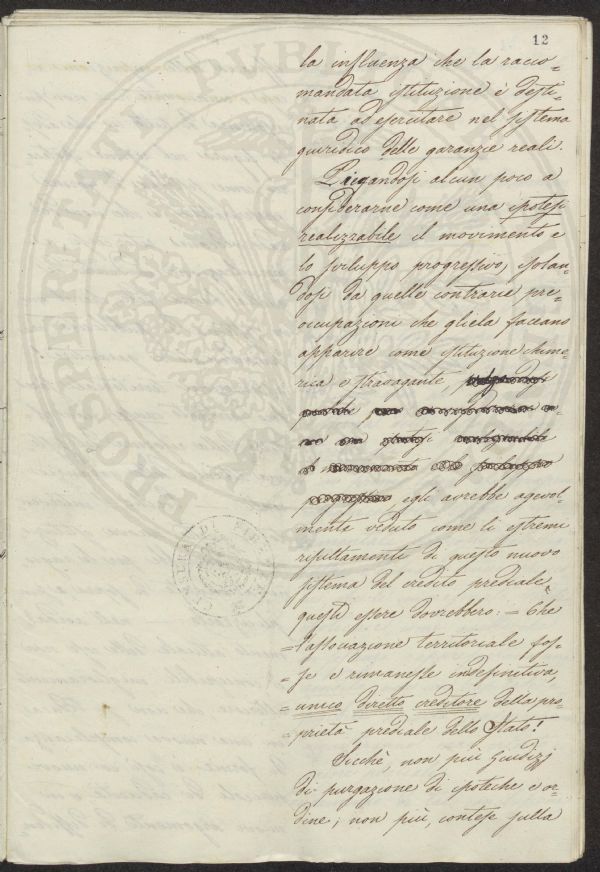 12
la influenza che la racco=
mandata istituzione è desti=
nata ad esercitare nel sistema
giuridico delle garanzie reali.
Piegandosi alcun poco a
considerarne come una ipotesi
realizzabile il movimento e
lo sviluppo progressivo, isolan=
dosi da quelle contrarie pre=
occupazioni che gliela faceano
apparire come istituzione chime=
rica e stravagante
egli avrebbe agevol=
mente veduto come li estremi
risultamenti di questo nuovo
sistema del credito prediale,
questi essere dovrebbero: = Che
= l'associazione territoriale fos=
= se e rimanesse indefinitiva,
= unico diretto creditore della pro=
= prietà prediale dello Stato!
Sicchè, non più Giudizj
di purgazione di ipoteche e or=
dine; non più, contese sulla
PROSPERITATI PUBLICAE